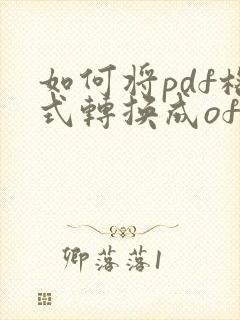 如何将pdf格
式轉换成of
卿落落1